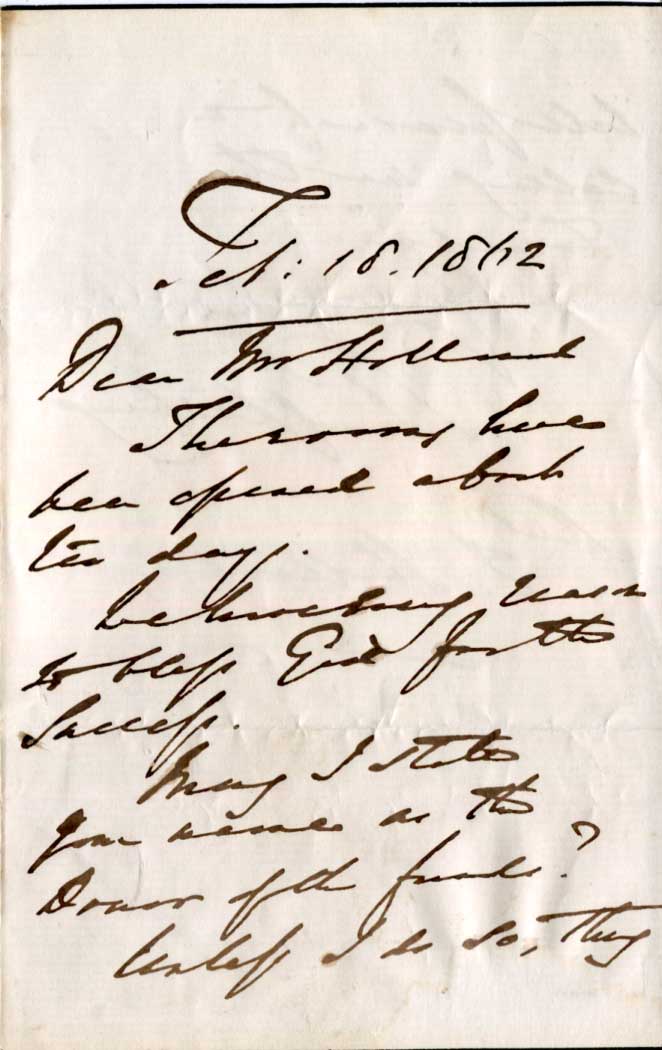 Feb: 18. 1872
Dear Mr Holland
The rooms have
been opened about
ten days.
We have every reason
to bless God for the
success.
May I state
your name as the
Donor of the funds?
Unless I do so, they